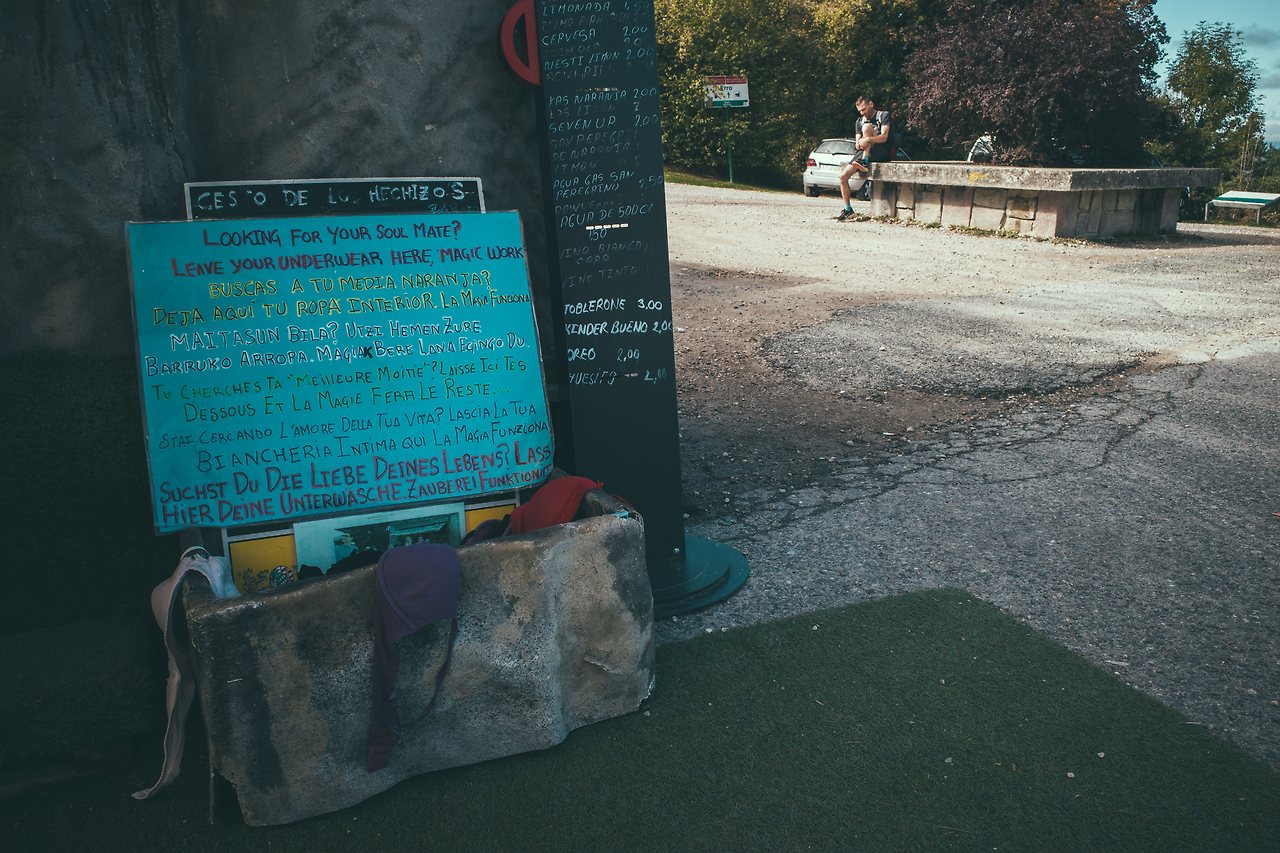 CESTO DE LOS HECHIZOS
LOOKING FOR YOUR SOUL MATE?
LEAVE YOUR UNDERWEAR HERE, MAGIC WORK
BUSCAS A TU MEDIA NARANJA?
DEJA AQUÍ TU ROPA INTERIOR. LA MAGIA FUNCIONA
MAITASUN BILA? UTZI HEMEN ZURE
BARRUKO ARROPA. MAGIAK BERE LANA EGINGO DU.
TU CHERCHES TA "MEILLEURE MOITIE"? LAISSE ICI TES
DESSOUS ET LA MAGIE FERA LE RESTE...
STAI CERCANDO L'AMORE DELLA TUA VITA? LASCIA LA TUA
BIANCHERIA INTIMA QUI LA MAGIA FUNZIONA
SUCHST DU DIE LIEBE DEINES LEBENS? LASS
HIER DEINE UNTERWASCHE. ZAUBEREI FUNKTIONIERT
LIMONADA
CERVESA 2,00
NESTI/LIMON 2,00
KAS NARANJA 2,00
KAS LIMON 2
SEVEN UP 2,00
SAN PEREGRI
DE NARANJA
AGUA GAS SAN
PEREGRINO 2,50
AGUA DE 50DCl
1,50
VINO BLANCO
COPA
VINO TINTO
TOBLERONE 3,00
KINDER BUENO 2,00
OREO 2,00
Erro